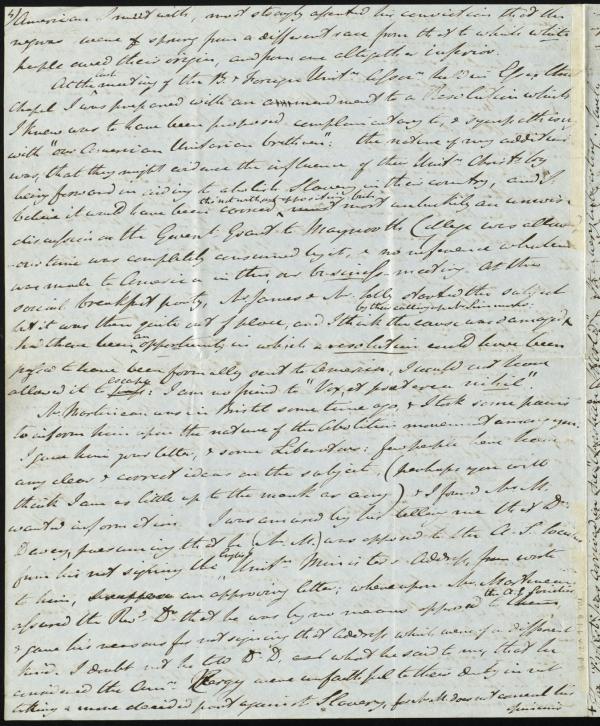 4/ American I meet with, most strongly asserted his conviction that the
negroes were sprung from a different race from that to which white
people owed their origin, and from one altogether inferior.
At the last meeting of the B. & Foreign Unitn Associn held in Essex Street
chapel I was prepared with an amendment to a Resolution which
I knew was to have been proposed complimentary to, & sympathising
with "our American Unitarian brethren": the nature of my addition
was, that they might evidence the influence of their Unitn Christy by
being forward in aiding to abolish Slavery in their country, and I
believe it would have been carried, tho not without opposition, but most unluckily an
discussion on the Govent Grant to Maynooth College was allowed
our time was completely consumed by it, & no reference whatever
was made to America in this, our business meeting. At the
social breakfast party, Mr James & Mr started the subject
but it was then quite out of place, and I think the cause was damaged by their calling up
had there been an opportunity in which a resolution could have been
passed to have been formally sent to America, I would not have
allowed it to escape: I am no friend to "Vox, et praeterea nihil".
Mr Martineau was in Bristol some time ago & I took some pains
to inform him upon the nature of the Abolition movement among you.
I gave him your letter, & some Liberators. few people here have
any clear & correct ideas on the subject, (perhaps you will
think I am as little up to the mark as any) & I found Mr M.
wanted information. I was amused by his telling me that Dr
Dewey, presuming that he (Mr M.) was opposed to the A. S. cause
from his not signing the English Unitn Ministers Address, from wrote
to him, an approving letter; whereupon Mr Martineau
assured the Revd Dr that he was by no means opposed to the A. S. Societies
& gave his reasons for not signing that address which were of a different
kind. I doubt not he told D. D. what he said to me, that he
considered the Amn Clergy were unfaithful to their duty in not
taking a more decided part against Slavery, for Mr M. does not conceal his
opinions